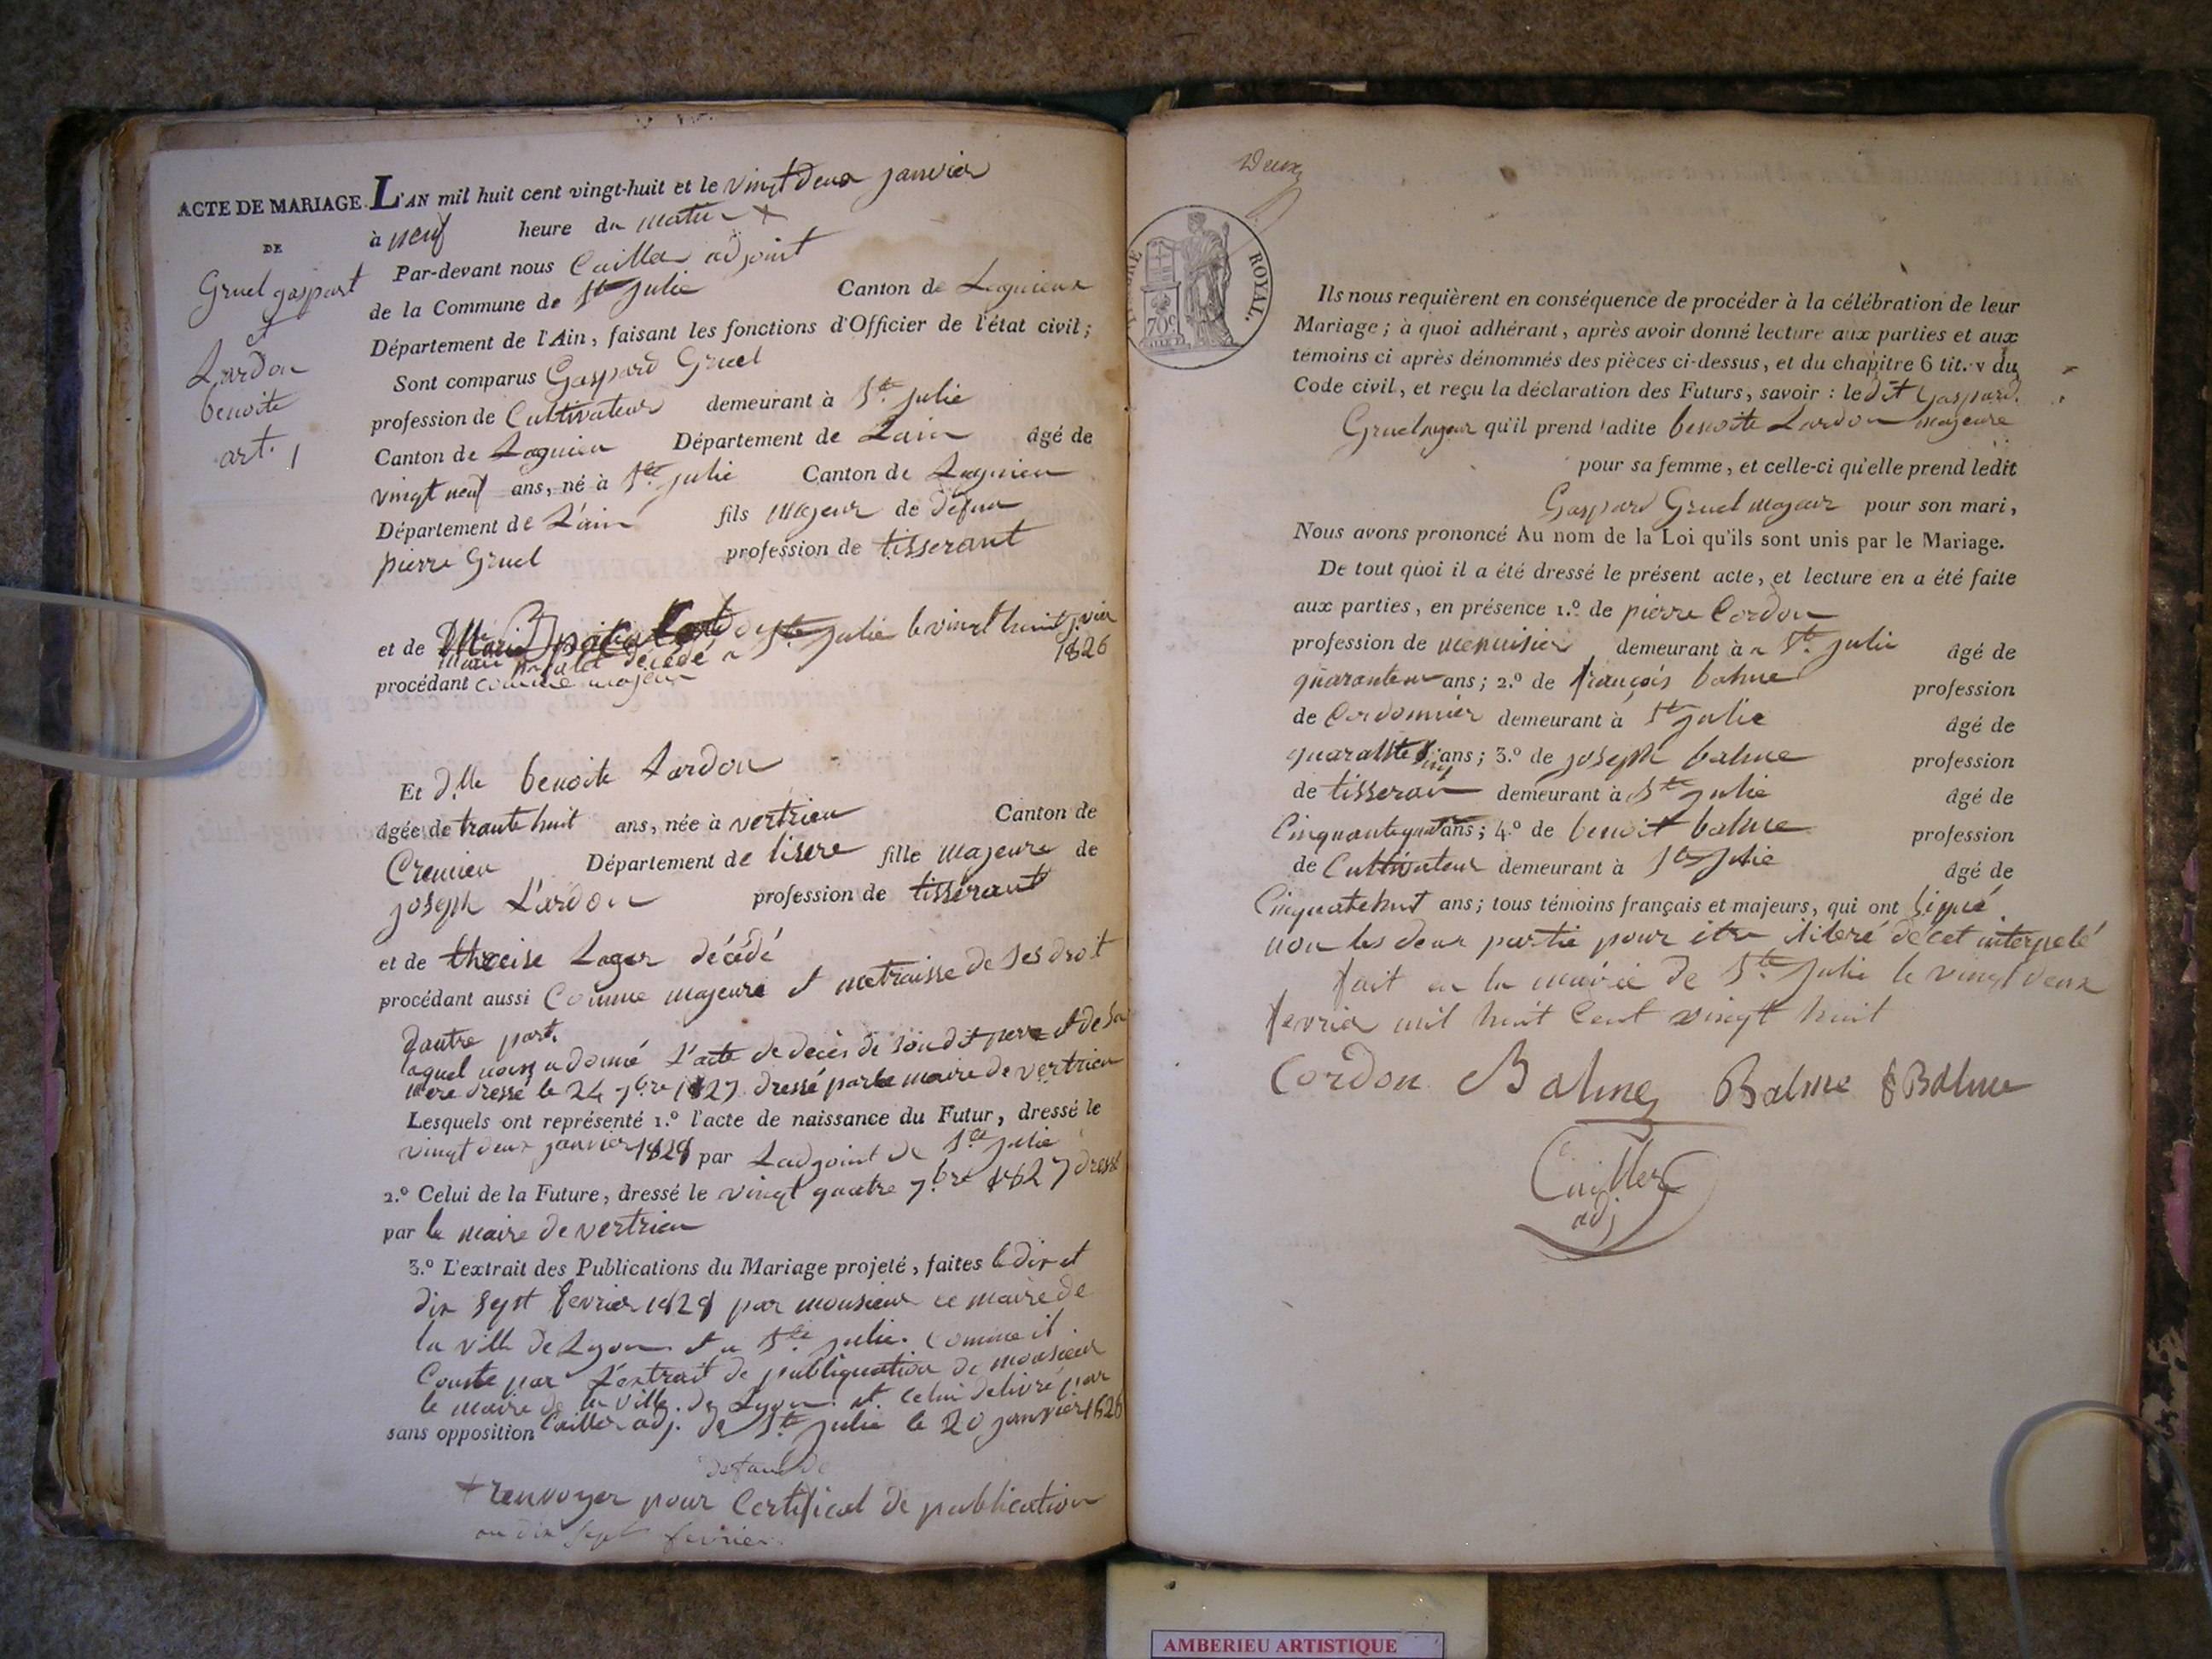 ACTE DE MARIAGE L'AN mil huit cent vingt-huit et le vingt deux janvier
DE
Gruel gaspart
et
Lardon
benoite
art. 1
à neuf heure du matin +
Par-devant nous Cailler adjoint
de la Commune de Ste julie Canton de Lagnieux
Département de l'Ain, faisant les fonctions d'Officier de l'état civil;
Sont comparus Gaspard Gruel
profession de Cultivateur demeurant à Ste julie
Canton de Lagnieu Département de Lain âgé de
vingt neuf ans, né à Ste julie Canton de Lagnieu
Département de L'ain fils majeur de defun
pierre Gruel profession de tisserant
et de Marie décédé a Ste julie le vingt huit jvier
1826
procédant comme majeur
Et dlle benoite Lardon
âgée de trante huit ans, née à vertrieu Canton de
Cremieu Département de lisere fille majeure de
joseph Lardon profession de tisserant
et de thereise Loger décédé
procédant aussi Comme majeure et metraisse de ses droit
dautre part.
laquel nous a donné L'acte de décès de son dit pere et de sa
mere dressé le 24 7bre 1827 dressé par le maire de vertrieu
Lesquels ont représenté 1.º l'acte de naissance du Futur, dressé le
vingt deux janvier 1828 par Ladjoint de Ste julie
2.º Celui de la Future, dressé le vingt quatre 7bre 1827 dressé
par le maire de vertrieu
3.º L'extrait des Publications du Mariage projeté, faites le dix et
dix sept fevrier 1828 par monsieur le maire de
la ville de Lyon et a Ste julie. Comme il
Conste par L'extrait de publiquation de monsieur
le maire de la ville de Lyon et celui delivré par
sans opposition Cailler adj. de Ste julie le 20 janvier 1828
+ renvoyer pour Certificat de publication
au dix sept fevrier
Deux
ROYAL.
70c
Ils nous requièrent en conséquence de procéder à la célébration de leur
Mariage; à quoi adhérant, après avoir donné lecture aux parties et aux
témoins ci après dénommés des pièces ci-dessus, et du chapitre 6 tit. v du
Code civil, et reçu la déclaration des Futurs, savoir: le dit Gaspard
Gruel majeur qu'il prend ladite benoite Lardon majeure
pour sa femme, et celle-ci qu'elle prend ledit
Gaspard Gruel majeur pour son mari,
Nous avons prononcé Au nom de la Loi qu'ils sont unis par le Mariage.
De tout quoi il a été dressé le présent acte, et lecture en a été faite
aux parties, en présence 1.º de pierre Cordon
profession de menuisier demeurant à a Ste julie âgé de
ans; 2.º de françois balme profession
de Cordonnier demeurant à Ste julie âgé de
quarante ans; 3.º de joseph balme profession
de tisseran demeurant à Ste julie âgé de
Cinquante quatre ans; 4.º de benoit balme profession
de Cultivateur demeurant à Ste julie âgé de
Cinquatehuit ans; tous témoins français et majeurs, qui ont signé
non les deux partie pour etre de cet interpelé
fait en la mairie de Ste julie le vingt deux
fevrier mil huit Cent vingt huit
Cordon Balme Balme f Balme
Cailler
adj
AMBERIEU ARTISTIQUE